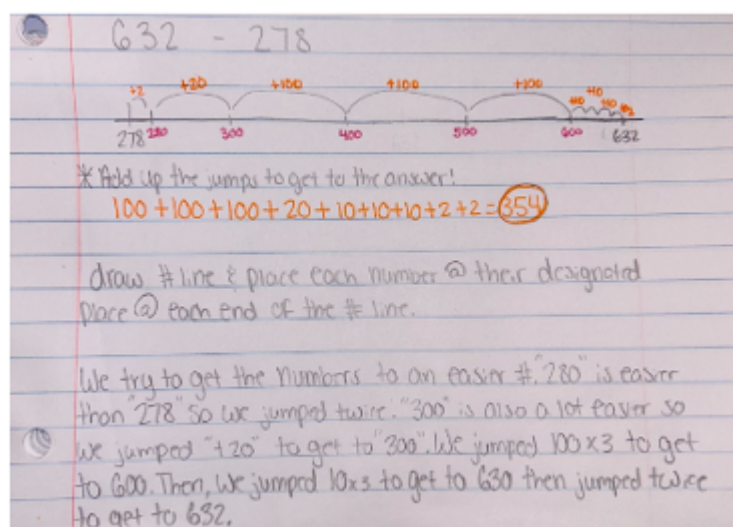 632 - 278
+2 +20 +100 +100 +100 +10 +10 +10 +2
278 280 300 400 500 600 632
* Add up the jumps to get to the answer!
100 +100 +100 + 20 + 10 +10 +10 +2 +2 = 354
draw # line & place each number @ their designated
place @ each end of the # line.
We try to get the numbers to an easier #. "280" is easier
than "278" so we jumped twice. "300" is also a lot easier so
we jumped "+20" to get to "300". We jumped 100 x 3 to get
to 600. Then, we jumped 10x3 to get to 630 then jumped twice
to get to 632.